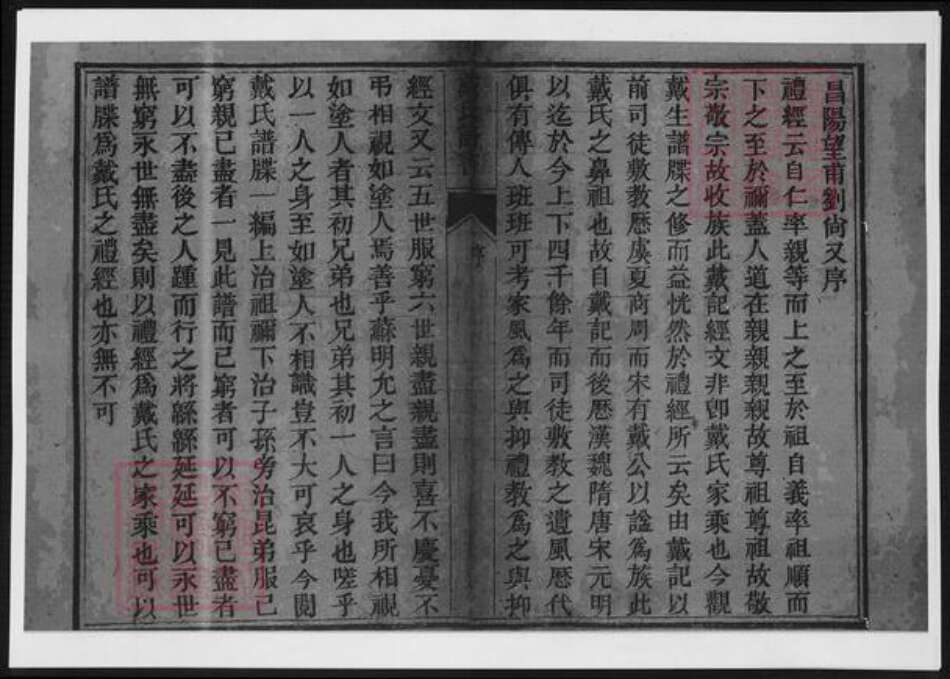 昌陽望甫劉尙又序
禮經云自仁率親等而上之至於祖自義率祖順而
下之至於禰蓋人道在親親親親故尊祖尊祖故敬
宗敬宗故收族此戴記經文非卽戴氏家乘也今觀
戴生譜牒之修而益恍然於禮經所云矣由戴記以
前司徒敷教歷虞夏商周而宋有戴公以諡爲族此
戴氏之鼻祖也故自戴記而後歷漢魏隋唐宋元明
以迄於今上下四千餘年而司徒敷教之遺風歷代
俱有傳人班班可考家風爲之與抑禮教爲之與抑
序
經文又云五世服窮六世親盡親盡則喜不慶憂不
弔相視如塗人焉善乎蘇明允之言曰今我所相視
如塗人者其初兄弟也兄弟其初一人之身也嗟乎
以一人之身至如塗人不相識豈不大可哀乎今閱
戴氏譜牒一編上治祖禰下治子孫旁治昆弟服已
窮親已盡者一見此譜而已窮者可以不窮已盡者
可以不盡後之人踵而行之將緜緜延延可以永世
無窮永世無盡矣則以禮經爲戴氏之家乘也可以
譜牒爲戴氏之禮經也亦無不可